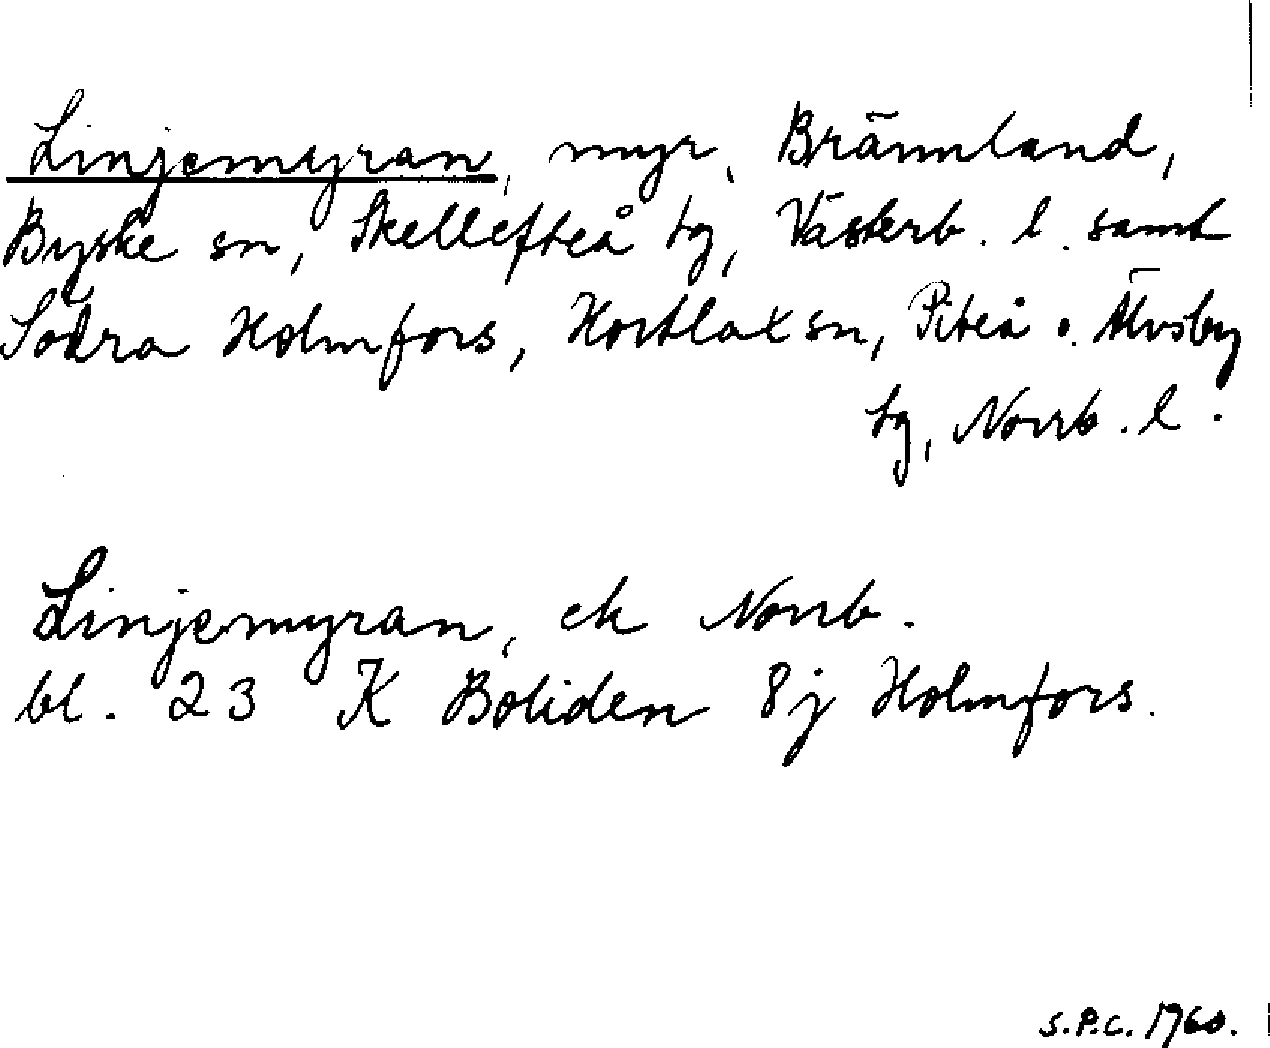 Linjemyran, myr, Brännland,
Byske sn, Skellefteå tg, Västerb. l. samt
Södra Holmfors, Hortlax sn, Piteå o. Älvsby
tg, Norrb. l.
Linjemyran, ek Norrb.
bl. 23 K Boliden 8j Holmfors.
S.P.C. 1960.